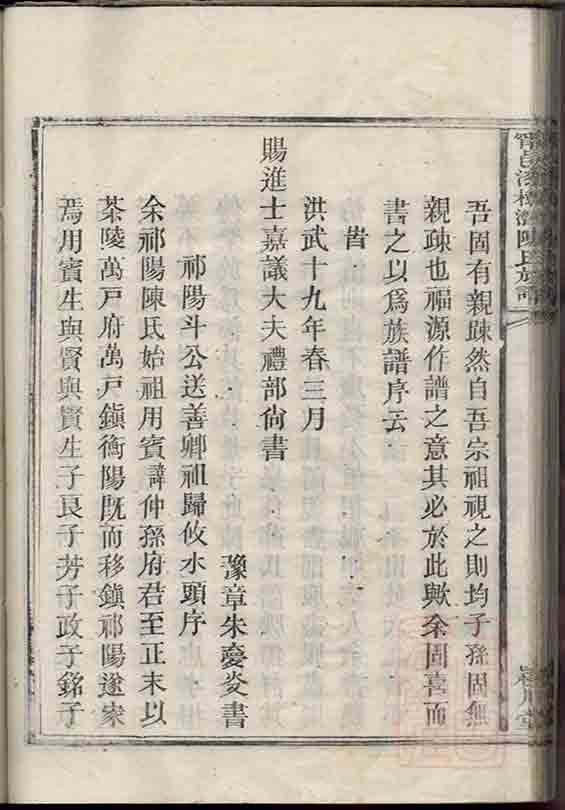 吾固有親踈然自吾宗祖視之則均子孫固無
親疎也福源作譜之意其必於此歟余固喜而
書之以爲族譜序云
旹
洪武十九年春三月
賜進士嘉議大夫禮部尙書
豫章朱夢炎書
祁陽斗公送善卿祖歸攸水頭序
余祁陽陳氏始祖用賓諱仲孫府君至正末以
茶陵萬戸府萬戸鎭衡陽旣而移鎭祁陽遂家
焉用賓生與賢與賢生子良子芳子政子銘子
陳氏族譜